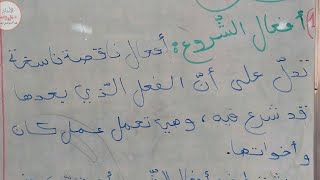 أفعال الشُّروع: أفعال ناقصة ناسخة
تدلّ على أنّ الفعل الّذي بعدها
قد شرع فيه، وهي تعمل عمل كان
وأخواتها.